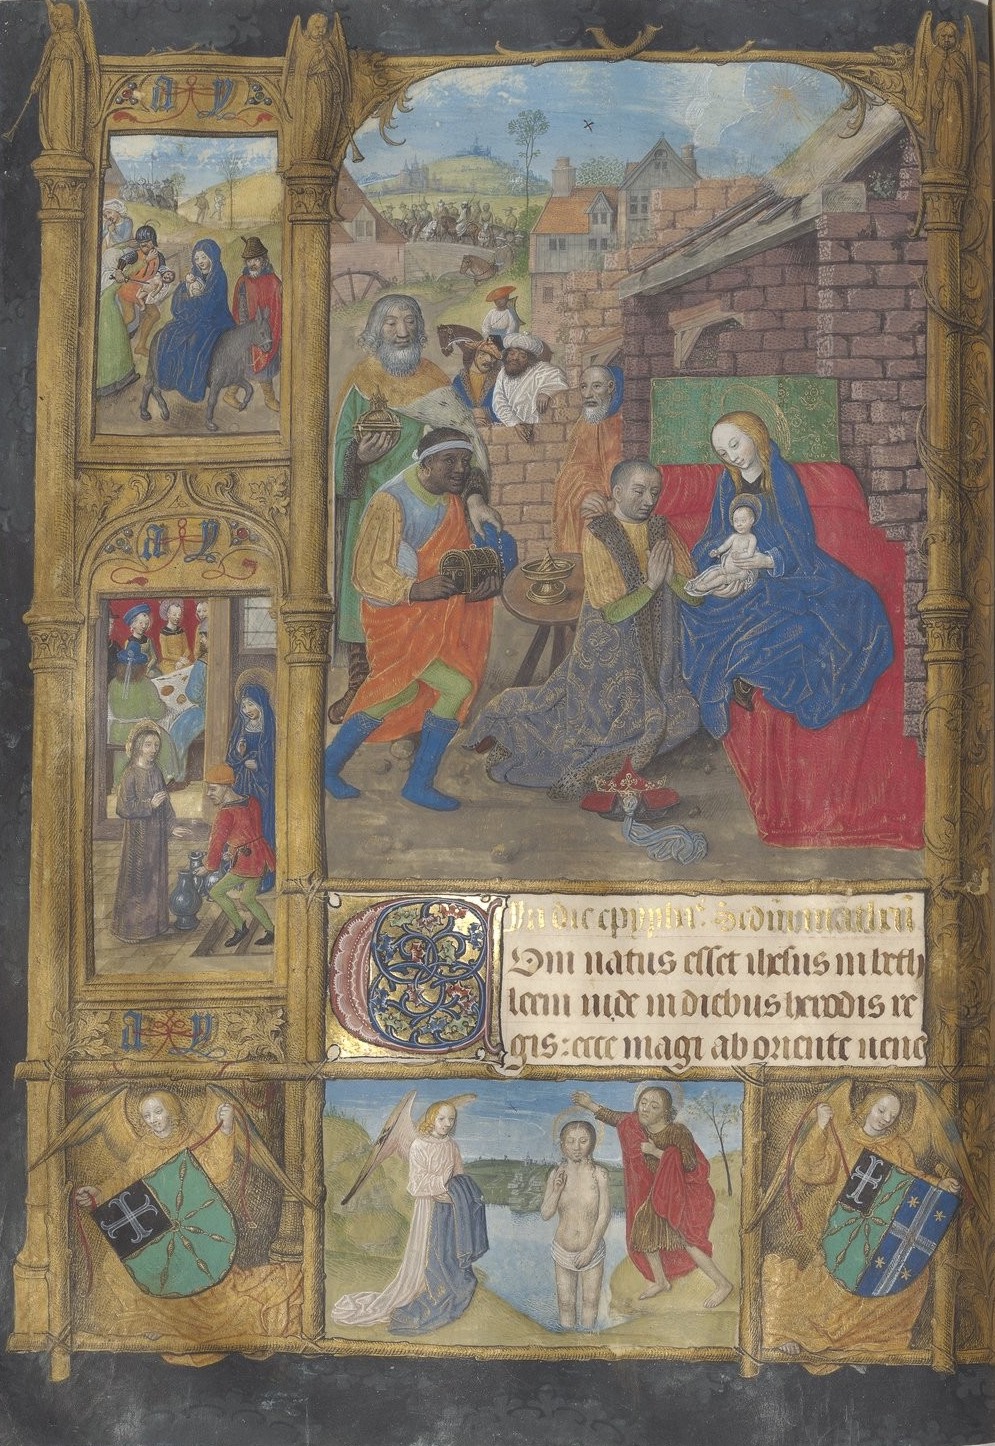 a y
a y
a y
In die epyphīe Sedm matheū
Cum natus esset ihesus in beth
leem iude in diebus herodis re
gis: ecce magi ab oriente uene